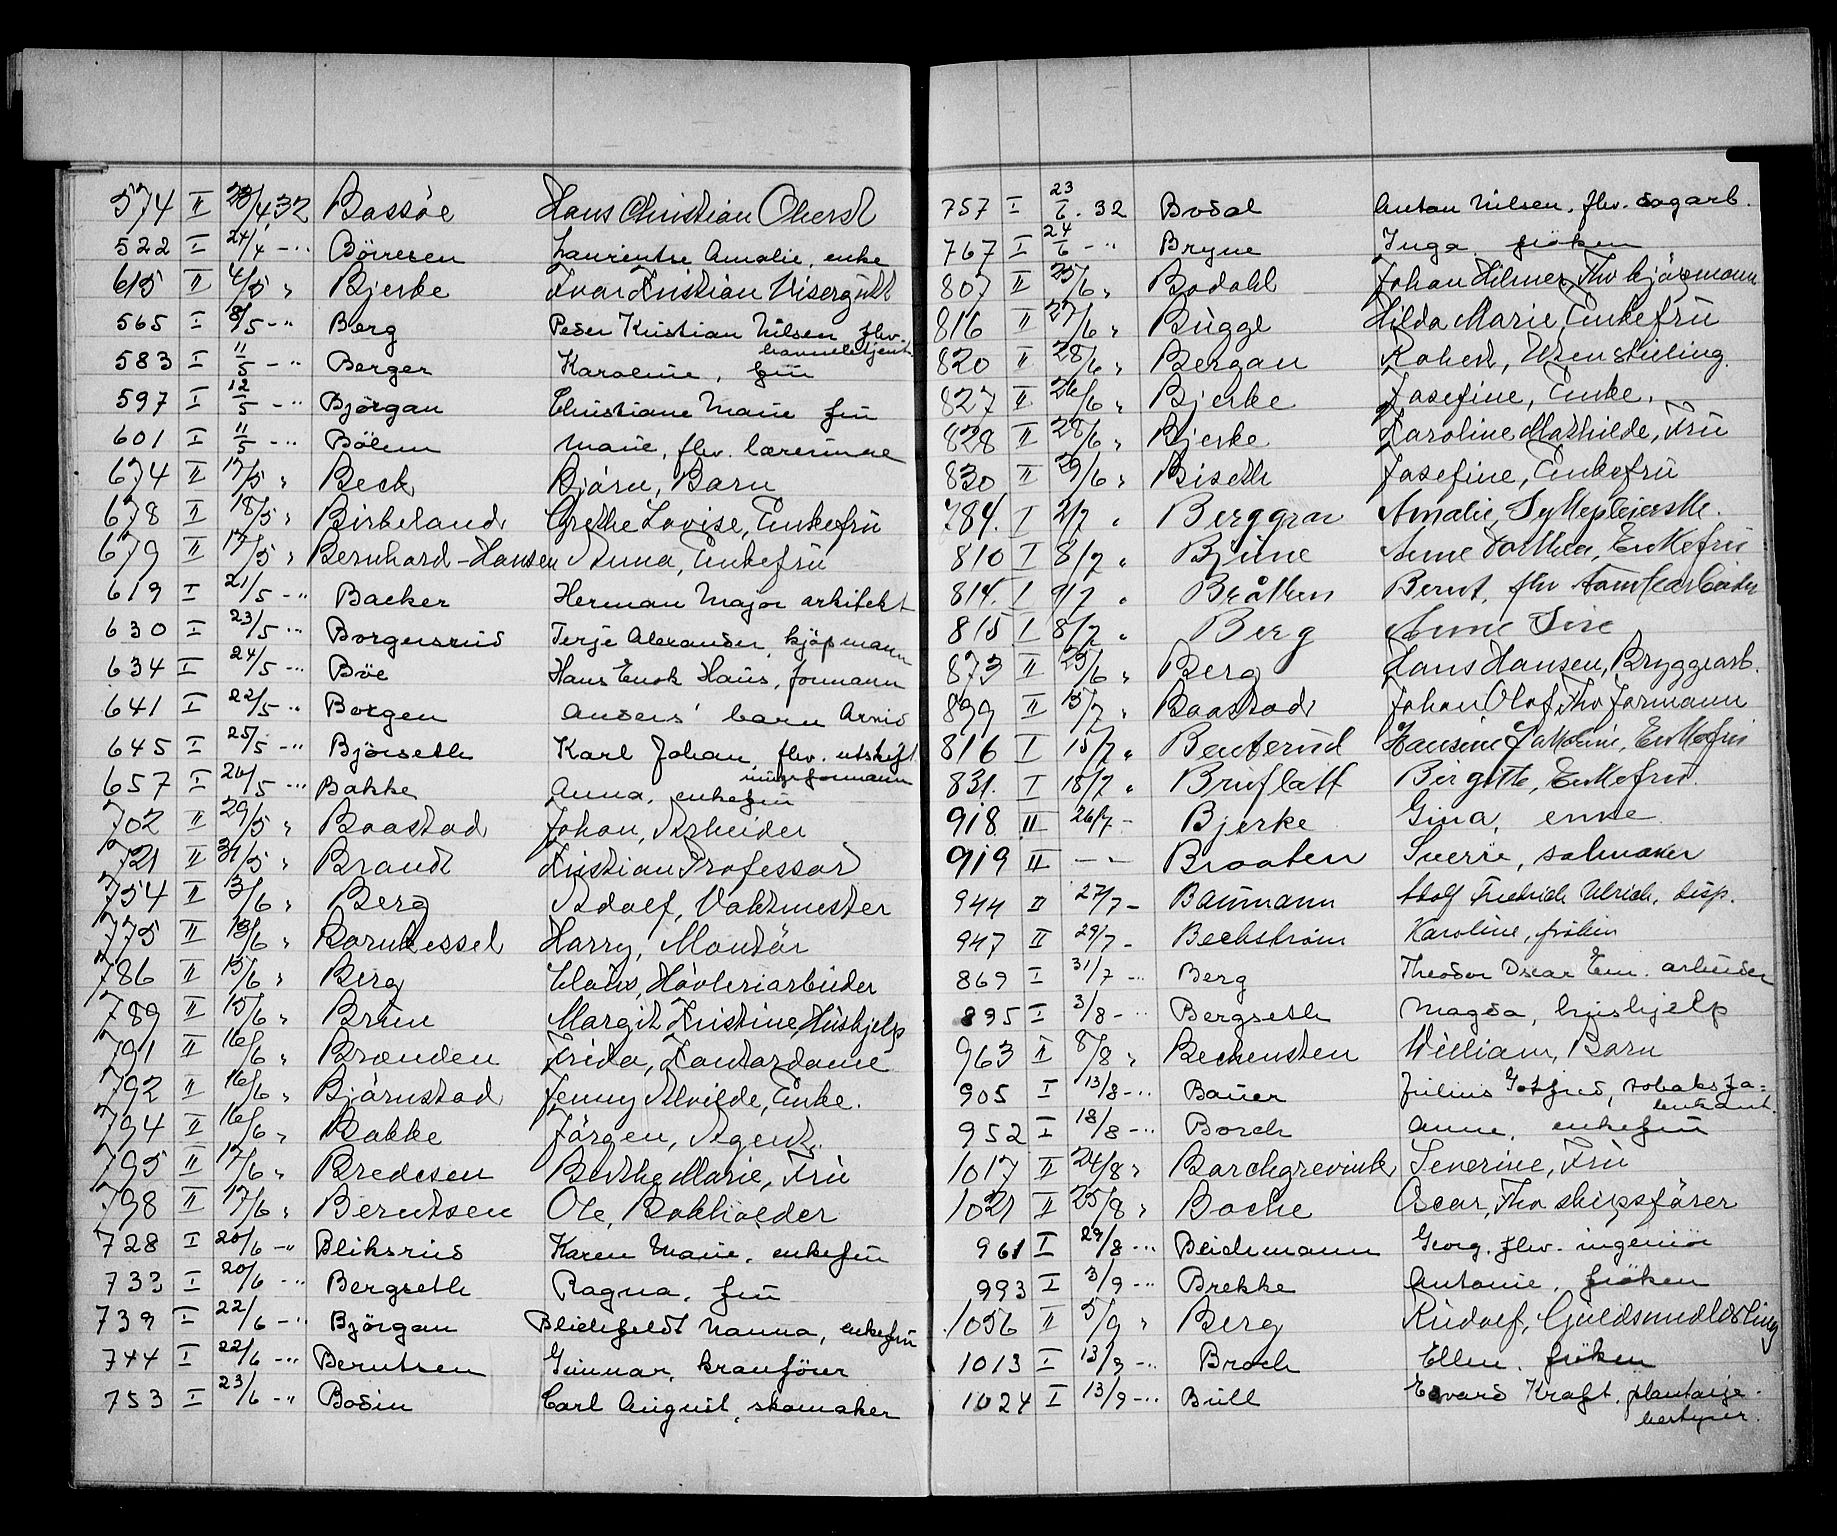 574 II 23/4 32 Bassöe Hans Christian Oberst
522 I 24/4 -" Böiresen Laurentse Amalie, enke
615 II 4/5 " Bjerke Ivar Kristian Visergutt
565 I 8/5 -" Berg Peder Kristian Nilsen fhv.
havnebetjent
583 I 11/5 -" Berger Karoline, frü
597 I 12/5 -" Björgan Christiane Marie frü
601 I 11/5 -" Böhm Marie, fhv. lærerinne
674 II 17/5 " Beck Björn, Barn
678 II 18/5 " Birkeland Grethe Lovise, Enkefrü
679 II 17/5 " Bernhard-Hansen Anna, Enkefrü
619 I 21/5 -" Backer Herman Major arkitekt
630 I 23/5 -" Borgersrud Terje Alexander, kjöpmann
634 I 24/5 -" Böe Hans Enok Haüs, formann
641 I 22/5 -" Borgen Anders' barn Arvid
645 I 25/5 -" Björseth Karl Johan, fhv. utskift
ningsformann
657 I 26/5 -" Bakke Anna, enkefrü
702 II 29/5 " Baastad Johan, Arbeider
721 II 31/5 " Brandt Kristian Professor
754 II 3/6 " Berg Adolf, Vaktmester
775 II 13/6 " Barnkessel Harry, Montör
786 II 15/6 " Berg Claüs, Hövleriarbeider
789 II 15/6 " Brün Margit Kristine, Hüshjelp
791 II 16/6 " Brænden Frida, Kontordame
792 II 16/6 " Björnstad Jenny Alvilde, Enke.
794 II 16/6 " Bakke Jörgen, Agent.
795 II 17/6 " Bredesen Berthe Marie, Frü
798 II 17/6 " Berntsen Ole, Bokholder
728 I 20/6 -" Bliksrüd Karen Marie, enkefrü
733 I 20/6 -" Bergseth Ragna, frü
739 I 22/6 -" Björgan Blichfeldt Nanna, enkefrü
744 I 22/6 -" Berntsen Gunnar, kranförer
753 I 23/6 -" Bodin Carl August, skomaker
757 I 23/6. 32 Bodal Anton Nilsen, fhv. sagarb.
767 I 24/6 -" Bryne Inga fröken
807 II 25/6 " Bodahl Johan Hilmer, Fhv kjöpmann
816 II 27/6 " Bügge Hilda Marie, Enkefrü
820 II 28/6 " Bergan Robert, Ulsen
827 II 26/6 " Bjerke Josefine, Enke.
828 II 28/6 " Bjerke Karoline Mathilde, Frü
830 II 29/6 " Biseth Josefine, Enkefrü
784. I 2/7 " Berggrav Amalie, Sykepleierske.
810 I 8/7 " Bjune Anne Dorthea, Enkefrü
814. I 9/7 " Bråthen Bernt, fhv tomtearbeider
815 I 8/7 " Berg Anne Sire
873 II 25/6 " Berg Hans Hansen, Bryggearb.
899 II 15/7 " Baastad Johan Olaf, Fhv Formann
816 I 15/7 " Benterud Hansine Cathrine, Enkefrü
831. I 18/7 " Bruflatt Birgitte, Enkefrü.
918 II 26/7 - Bjerke Gina, enke
919 II - - Braaten Sverre, salmaker
944 II 27/7 - Baümann Adolf Fredrich Ulrich, disp.
947 II 29/7 - Beckström Karoline, fröken
869 I 31/7 -" Berg Theodor Oscar Em. arbeider
895 I 3/8 -" Bergseth Magda, hüshjelp
963 II 8/8 " Bechensten William, Barn
905 I 13/8 -" Baüer Julius Gotfred, tobaksfa=
brikant.
952 I 18/8 -" Borch Anne, enkefrü
1017 II 24/8 " Borchgrevink Severine, Frü
1021 II 25/8 " Boche Oscar, Fhv skipsförer
961 I 29/8 -" Beichmann Georg, fhv. ingeniör
993 I 3/9 -" Brekke Antonie, fröken
1056 II 5/9 " Berg Rüdolf, Güldsmedlærling
1013 I 13/9 -" Broch Ellen, fröken
1024 I 13/9 -" Büll Edvard Kraft, plantasje-
bestyrer.